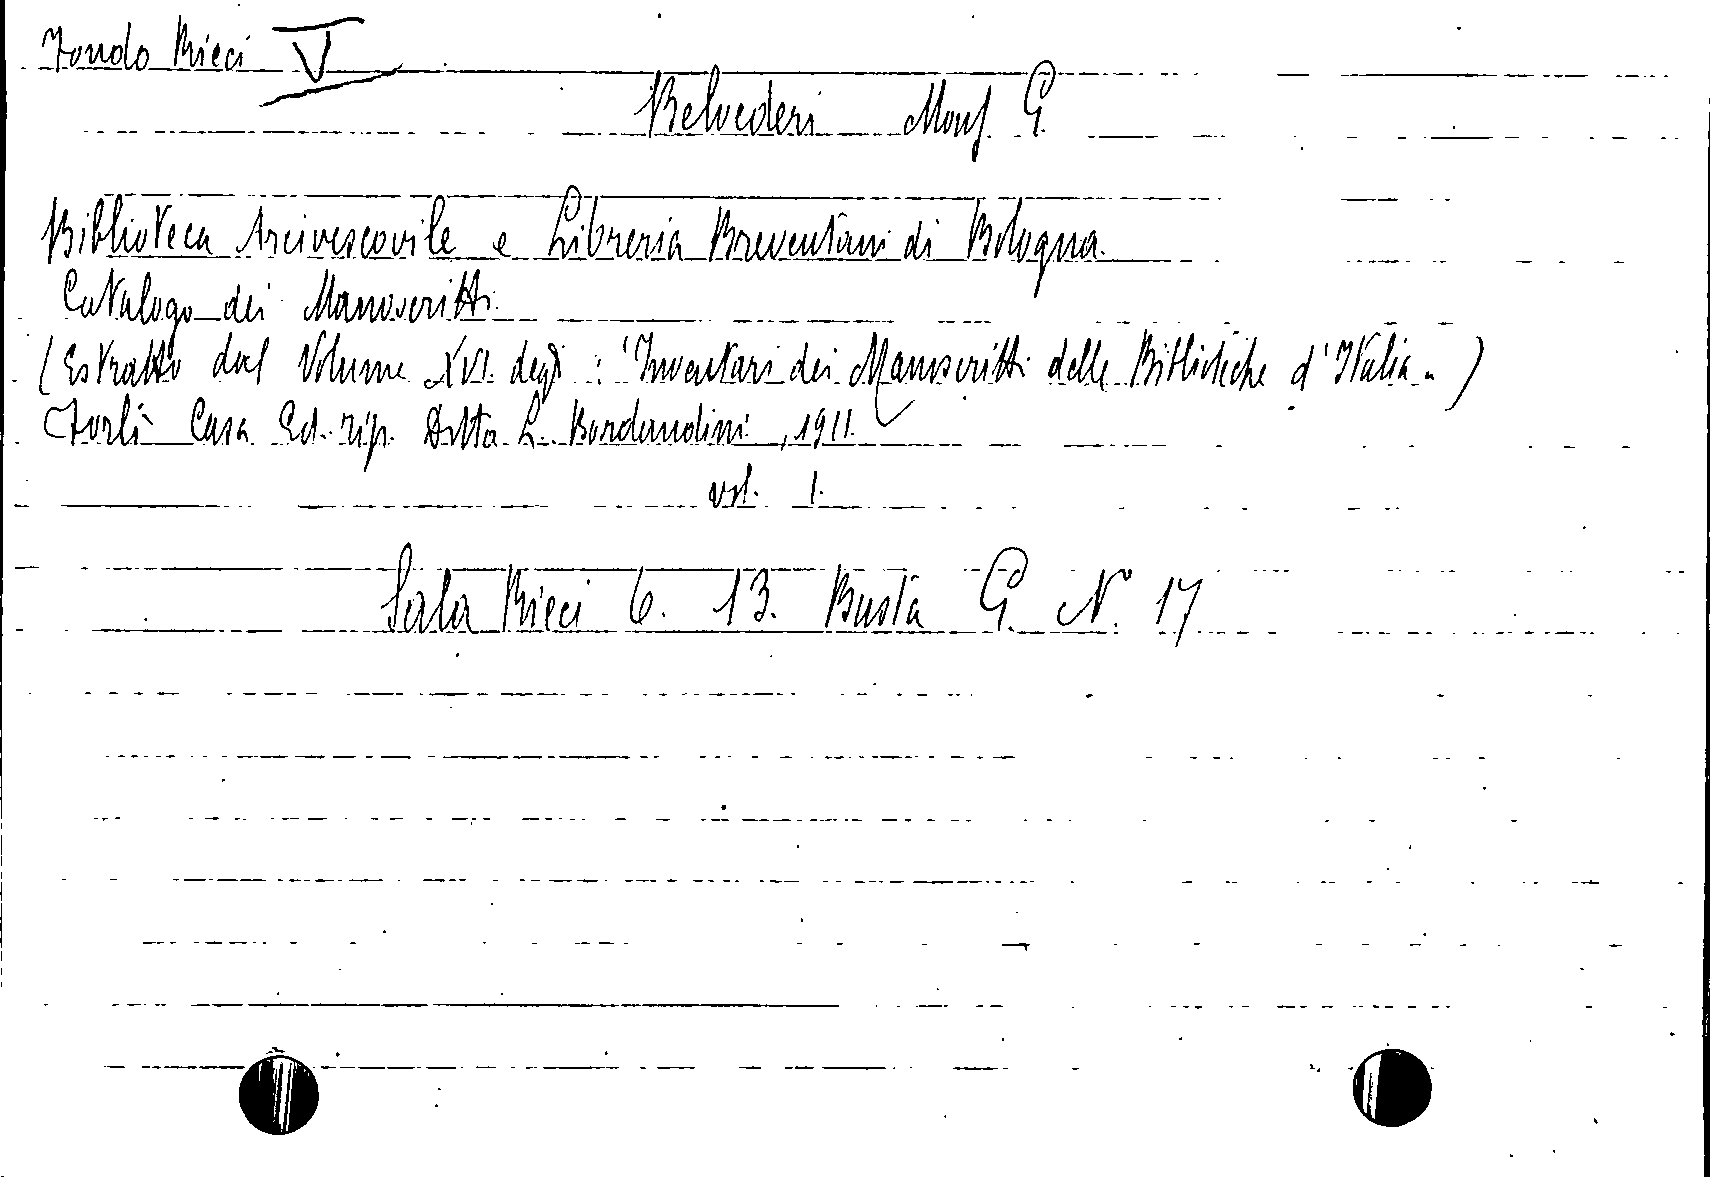 Fondo Ricci V
Belvederi Mons. G.
Biblioteca Arcivescovile e Libreria Breventani di Bologna.
Catalogo dei Manoscritti.
(Estratto dal Volume XVI. degli: "Inventari dei Manoscritti delle Biblioteche d'Italia.)
Forlì Casa Ed. tip. Ditta L. Bordandini, 1911.
vol. 1.
Sala Ricci 6. 13. Busta G. N. 17